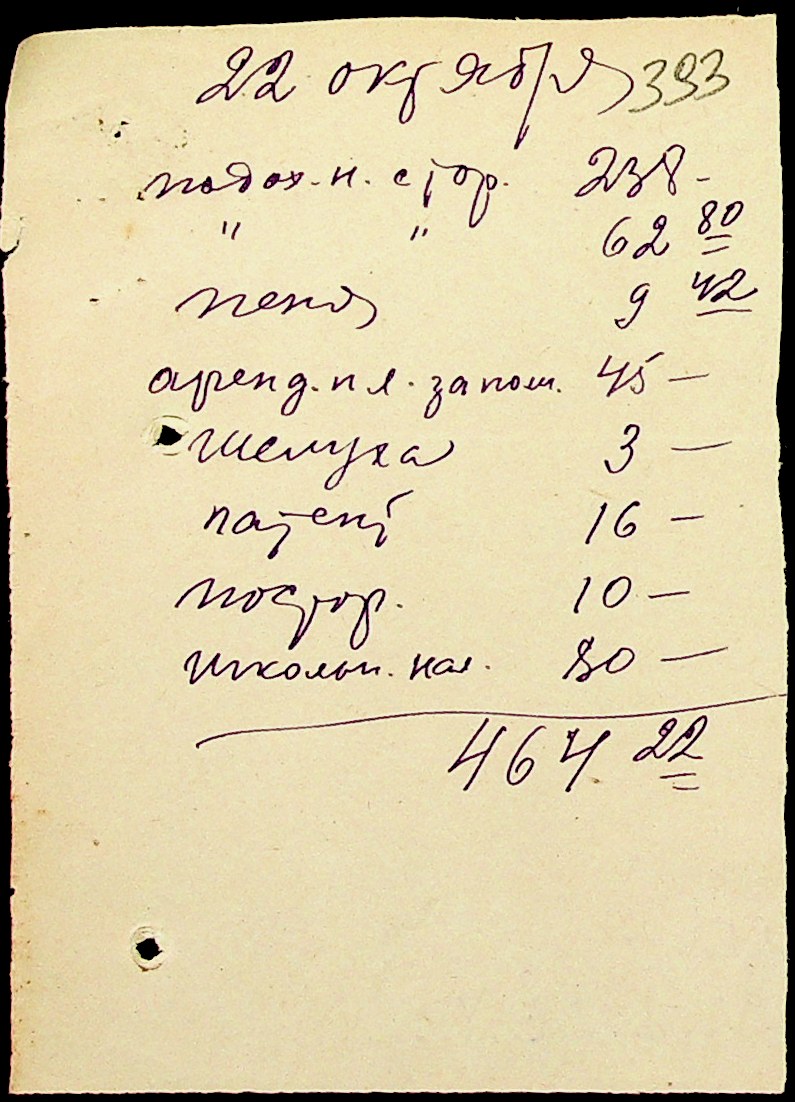 22 октября 393
подох. н. с тор. 238 -
" " 62 80
пеня 9 42
аренд. пл. за пом. 45 —
шелуха 3 —
патент 16 —
постор. 10 —
школьн. нал. 80 —
464 22